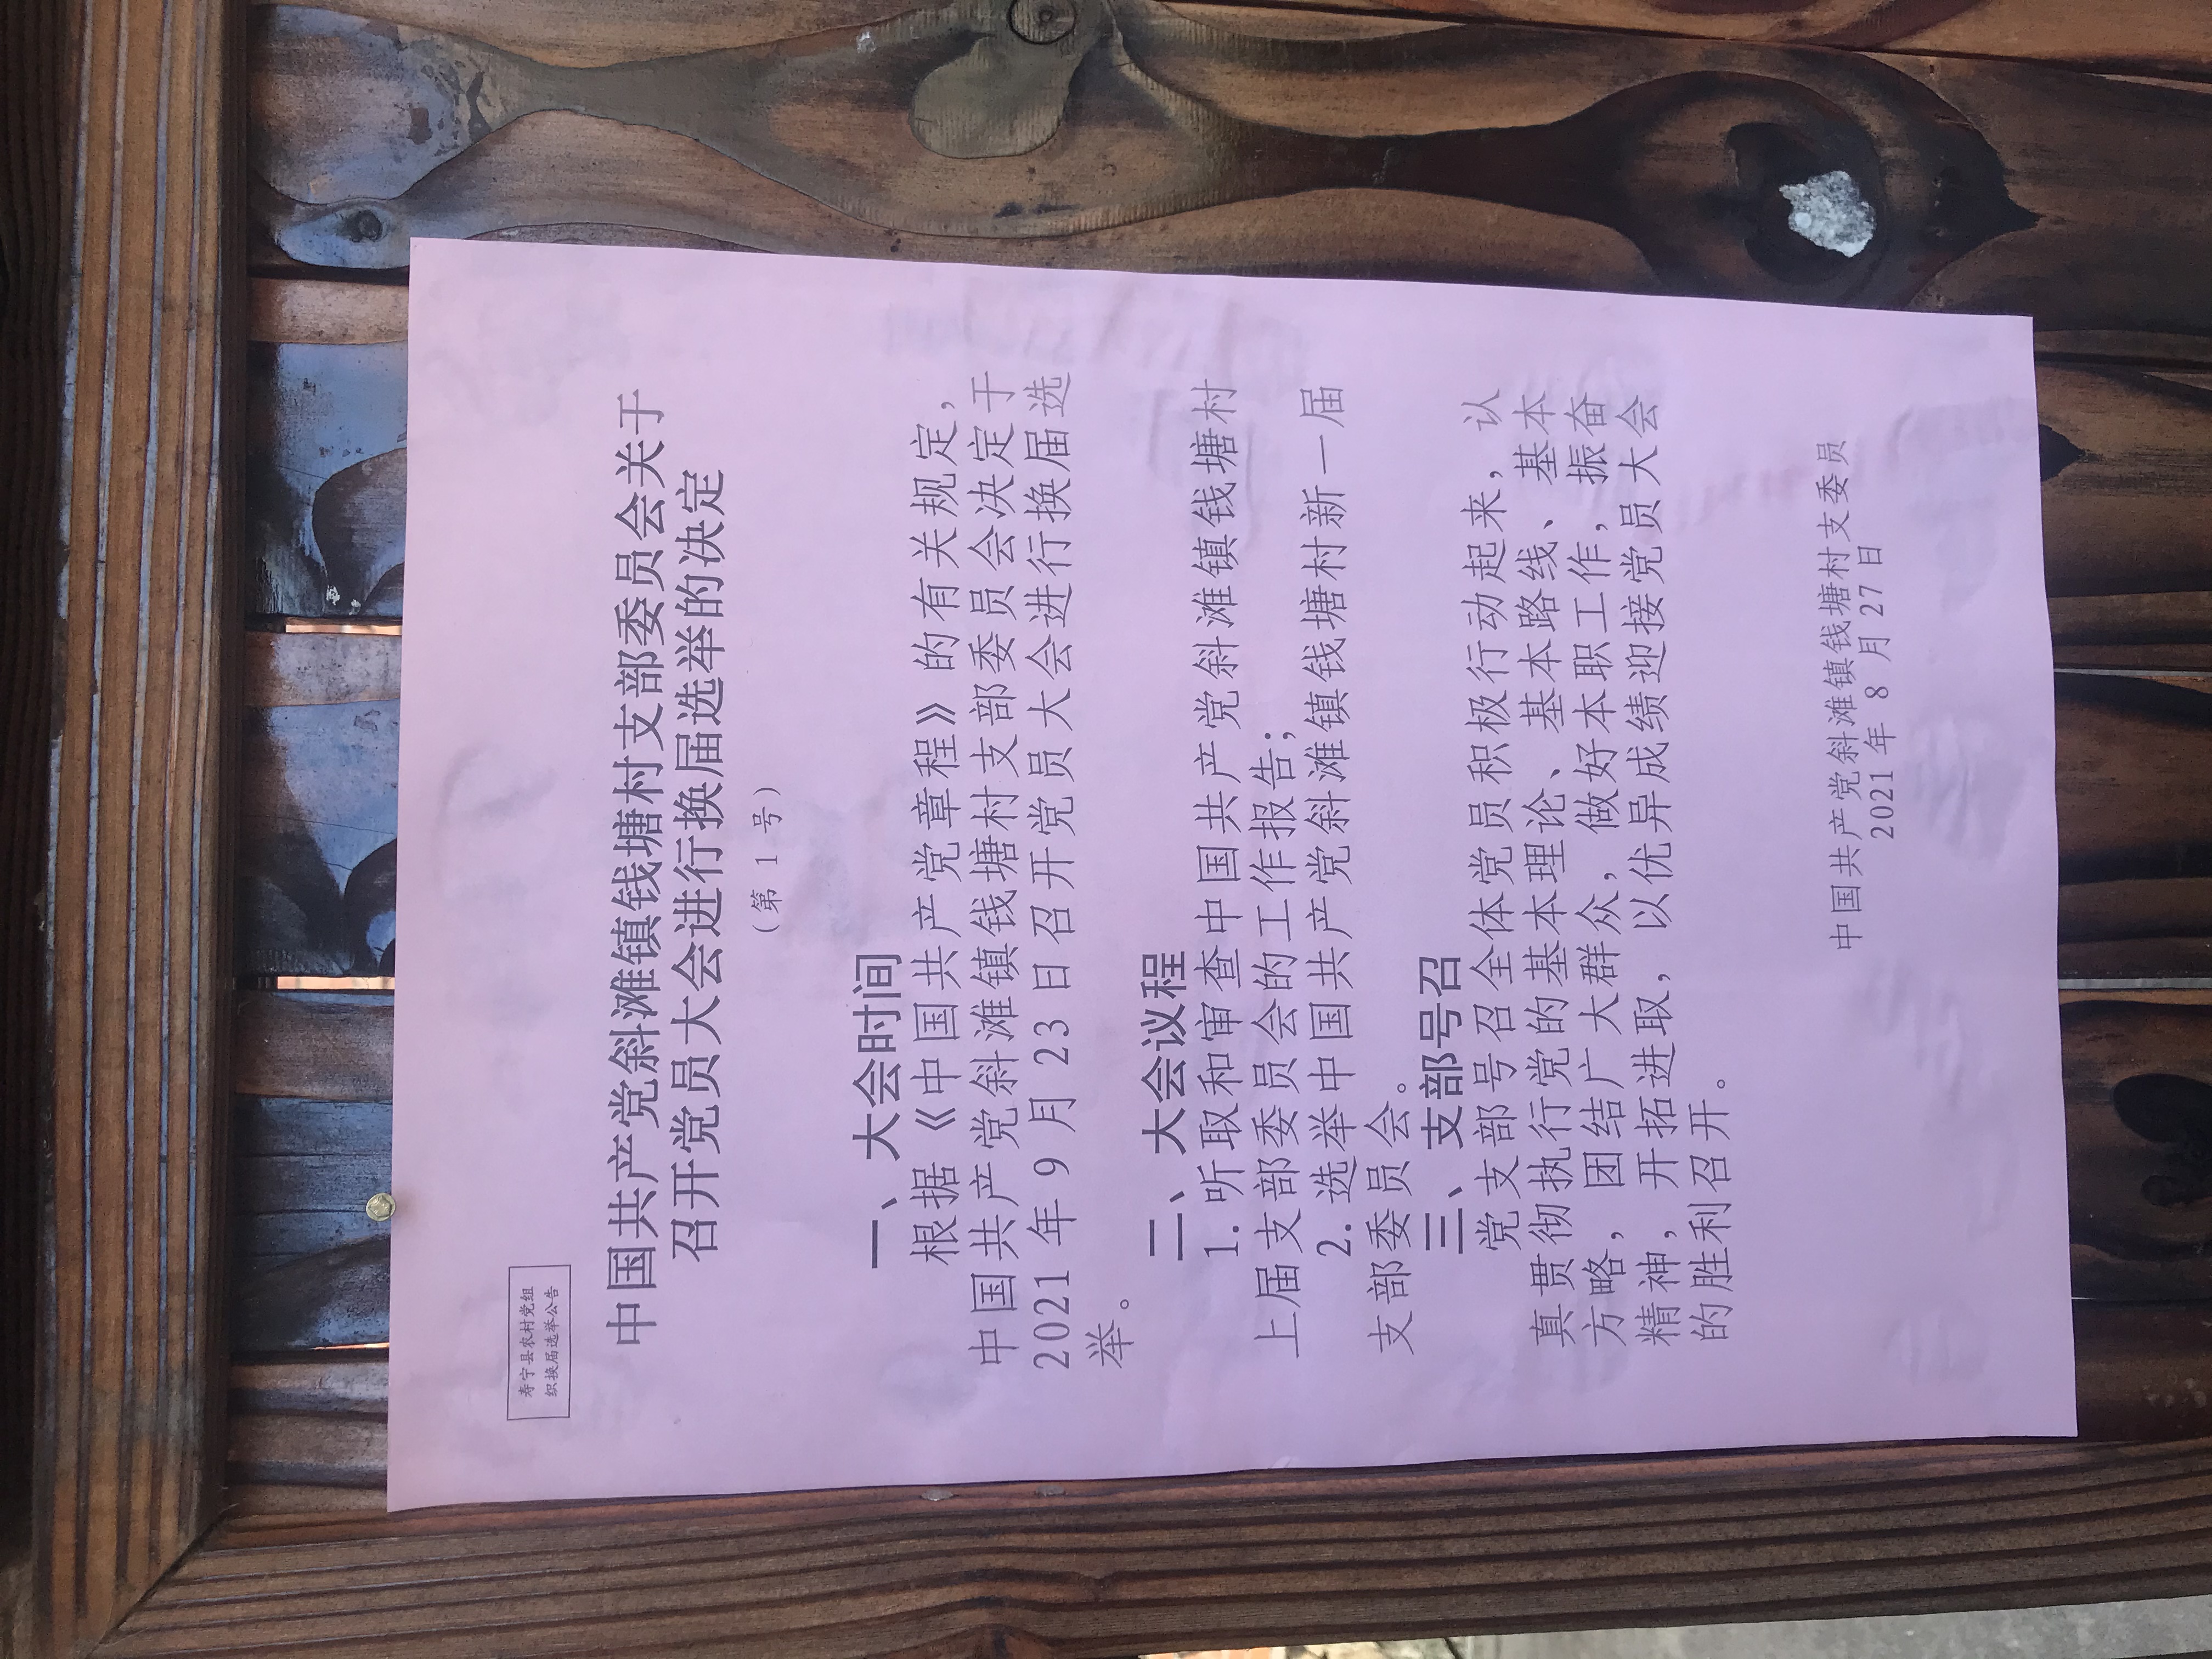 寿宁县农村党组
织换届选举公告
中国共产党斜滩镇钱塘村支部委员会关于
召开党员大会进行换届选举的决定
（第 1 号）
一、大会时间
根据《中国共产党章程》的有关规定，
中国共产党斜滩镇钱塘村支部委员会决定于
2021 年 9 月 23 日召开党员大会进行换届选
举。
二、大会议程
1.听取和审查中国共产党斜滩镇钱塘村
上届支部委员会的工作报告；
2.选举中国共产党斜滩镇钱塘村新一届
支部委员会。
三、支部号召
党支部号召全体党员积极行动起来，认
真贯彻执行党的基本理论、基本路线、基本
方略，团结广大群众，做好本职工作，振奋
精神，开拓进取，以优异成绩迎接党员大会
的胜利召开。
中国共产党斜滩镇钱塘村支委员
2021 年 8 月 27 日